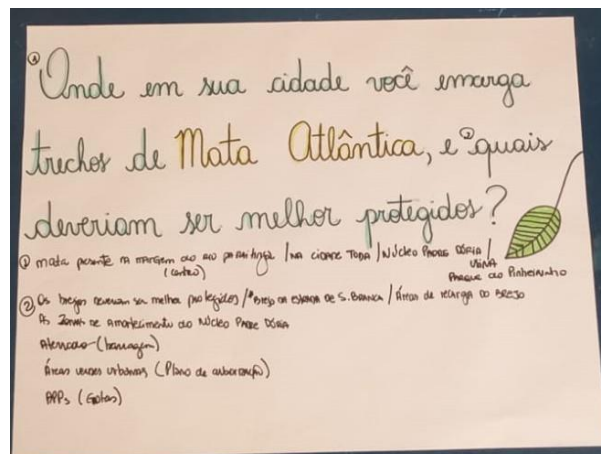 ① Onde em sua cidade você emxarga
trechos de Mata Atlântica, e ② quais
deveriam ser melhor protegidos?
① mata na margem do rio / na cidade toda / Núcleo Padre Dória /
(centro) Usina
Parque do Pinheirinho
② Os brejos deveriam ser melhor protegidos / * Brejo na estrada de S. Branca / Áreas de recarga do Brejo
As zonas de amortecimento do Núcleo Padre Dória
Atenção (barragem)
Áreas verdes urbanas (Plano de arborização)
APPs